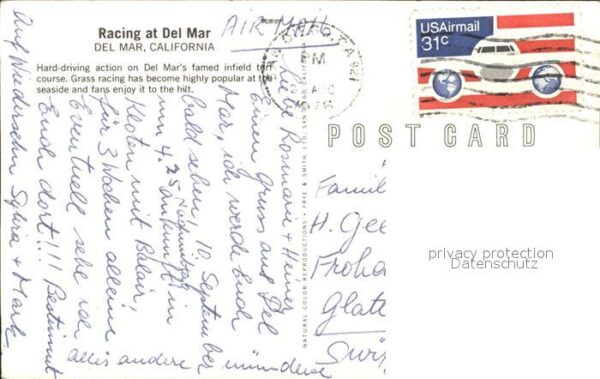 Racing at Del Mar
DEL MAR, CALIFORNIA
Hard-driving action on Del Mar's famed infield turf
course. Grass racing has become highly popular at the
seaside and fans enjoy it to the hilt.
AIR MAIL
USAirmail
31c
PM
POST CARD
NATURAL COLOR REPRODUCTIONS • FRYE & SMITH, LTD. SAN DIEGO, CALIFORNIA
Liebe Rosmarie + Heiner
Einen Gruss aus Del
Mar, ich werde Euch
bald sehen, 10. September
um 4.25 Nachmittags
Ankunft in
Kloten mit Balair,
für 3 Wochen alleine
Eventuell sehe ich
Euch dort!!! Bestimmt
Auf Wiedersehn Sylvia + Mark
alles andere mündlich
Famil
H. Gee
Froha
Glatt
Swi
privacy protection
Datenschutz